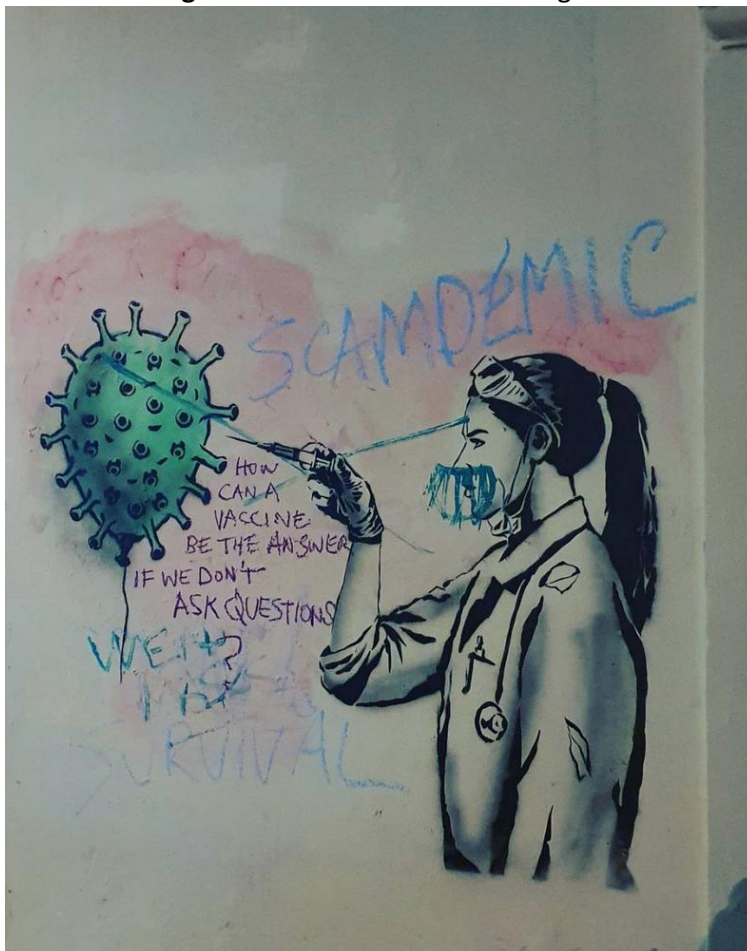 SCAMDEMIC
HOW
CAN A
VACCINE
BE THE ANSWER
IF WE DON'T
ASK QUESTIONS
?
SURVIVAL